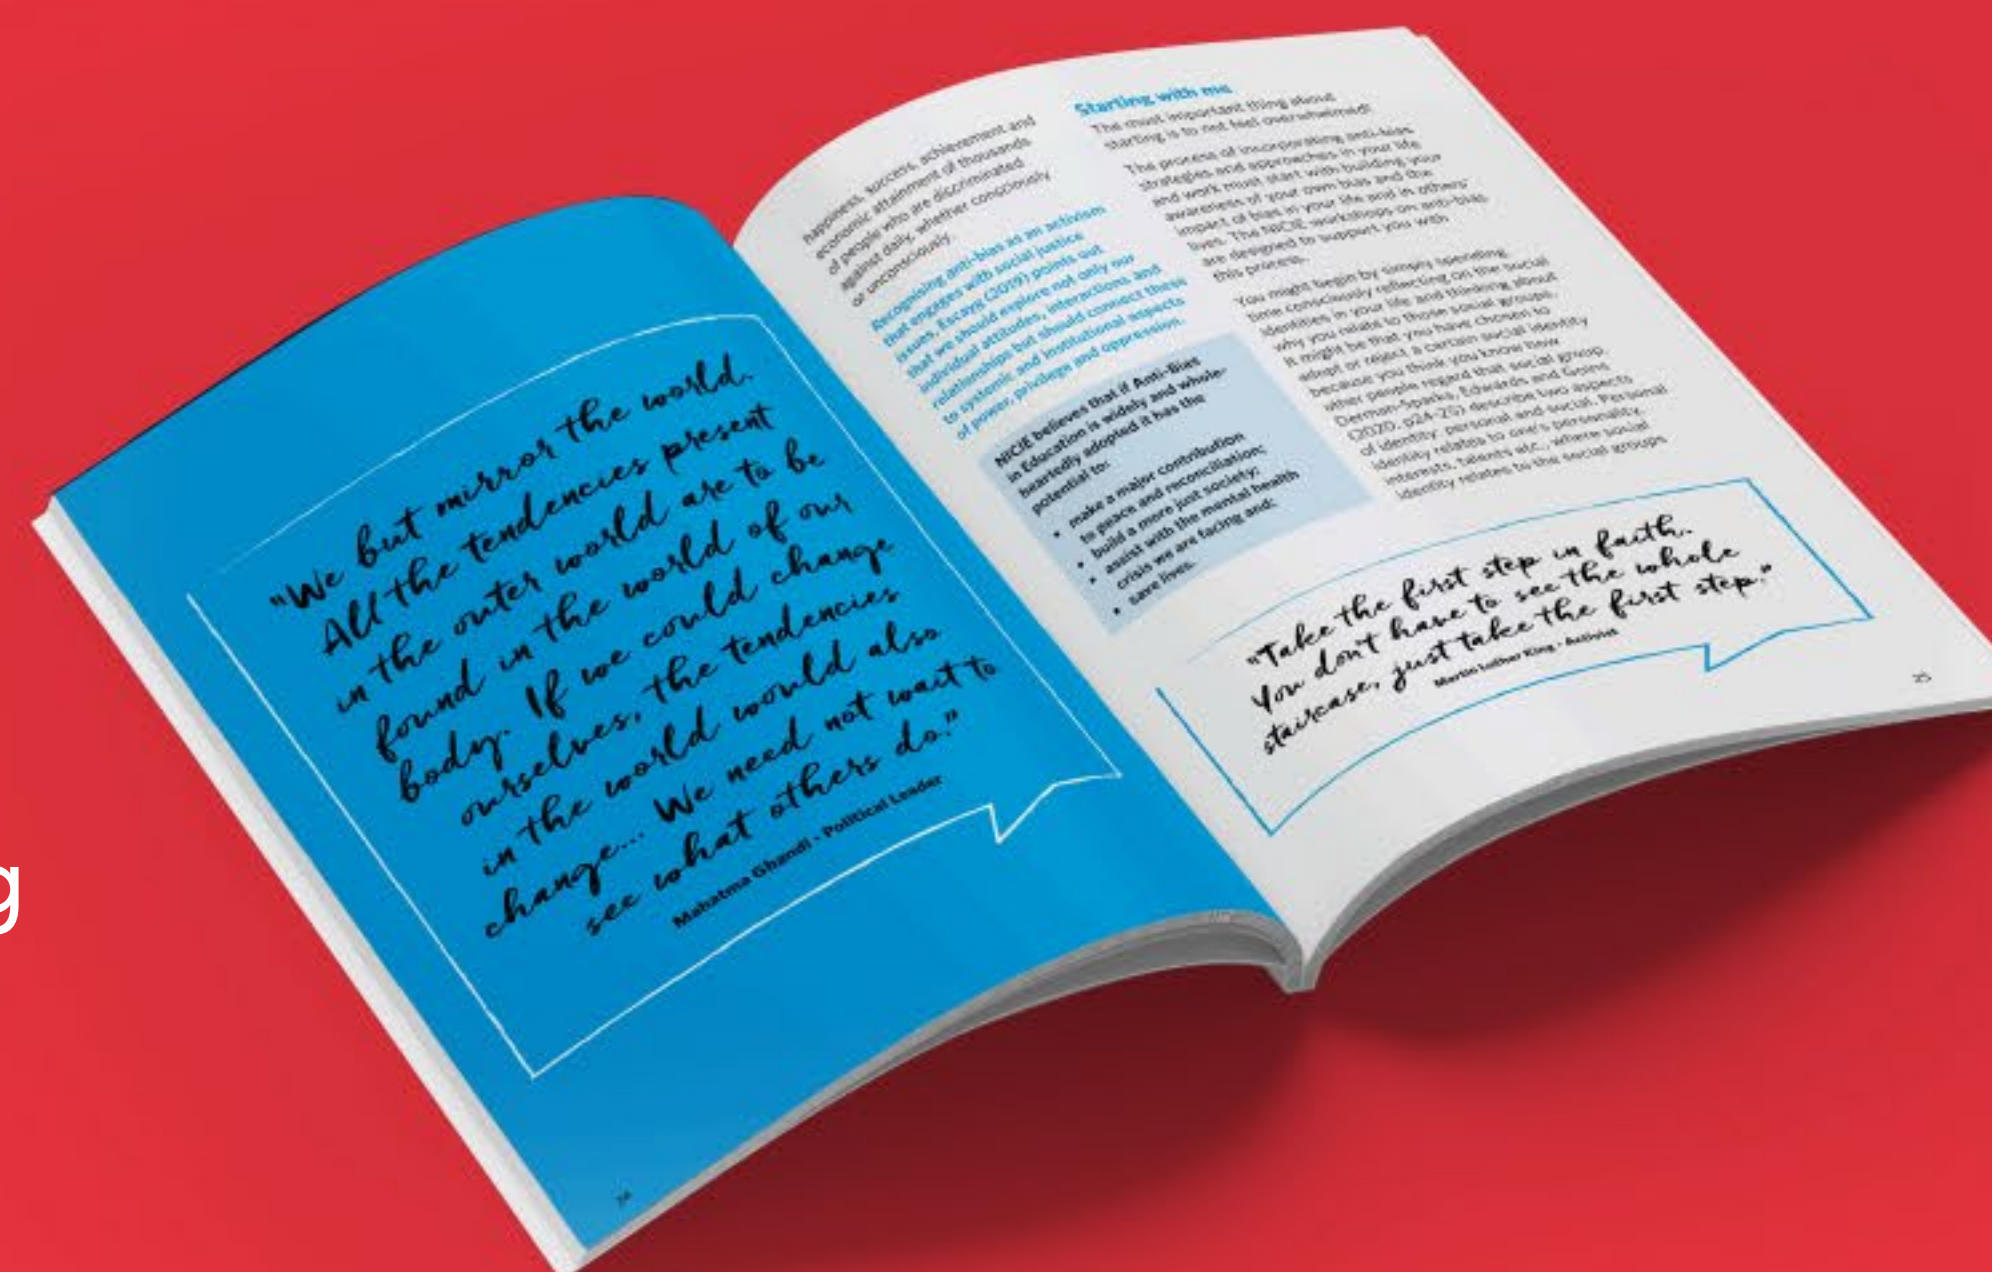 "We but mirror the world.
All the tendencies present
in the outer world are to be
found in the world of our
body. If we could change
ourselves, the tendencies
in the world would also
change... We need not wait to
see what others do."
Mahatma Ghandi - Political Leader
24
happiness, success, achievement and
economic attainment of thousands
of people who are discriminated
against daily, whether consciously
or unconsciously.
Recognising anti-bias as an activism
that engages with social justice
issues, Escayg (2019) points out
that we should explore not only our
individual attitudes, interactions and
relationships but should connect these
to systemic and institutional aspects
of power, privilege and oppression.
NICIE believes that if Anti-Bias
in Education is widely and whole-
heartedly adopted it has the
potential to:
• make a major contribution
to peace and reconciliation;
• build a more just society;
• assist with the mental health
crisis we are facing and;
• save lives.
Starting with me
The most important thing about
starting is to not feel overwhelmed!
The process of incorporating anti-bias
strategies and approaches in your life
and work must start with building your
awareness of your own bias and the
impact of bias in your life and in others'
lives. The NICIE workshops on anti-bias
are designed to support you with
this process.
You might begin by simply spending
time consciously reflecting on the social
identities in your life and thinking about
why you relate to those social groups.
It might be that you have chosen to
adopt or reject a certain social identity
because you think you know how
other people regard that social group.
Derman-Sparks, Edwards and Goins
(2020, p24-25) describe two aspects
of identity: personal and social. Personal
identity relates to one's personality,
interests, talents etc., where social
identity relates to the social groups
"Take the first step in faith.
You don't have to see the whole
staircase, just take the first step."
Martin Luther King - Activist
25
g